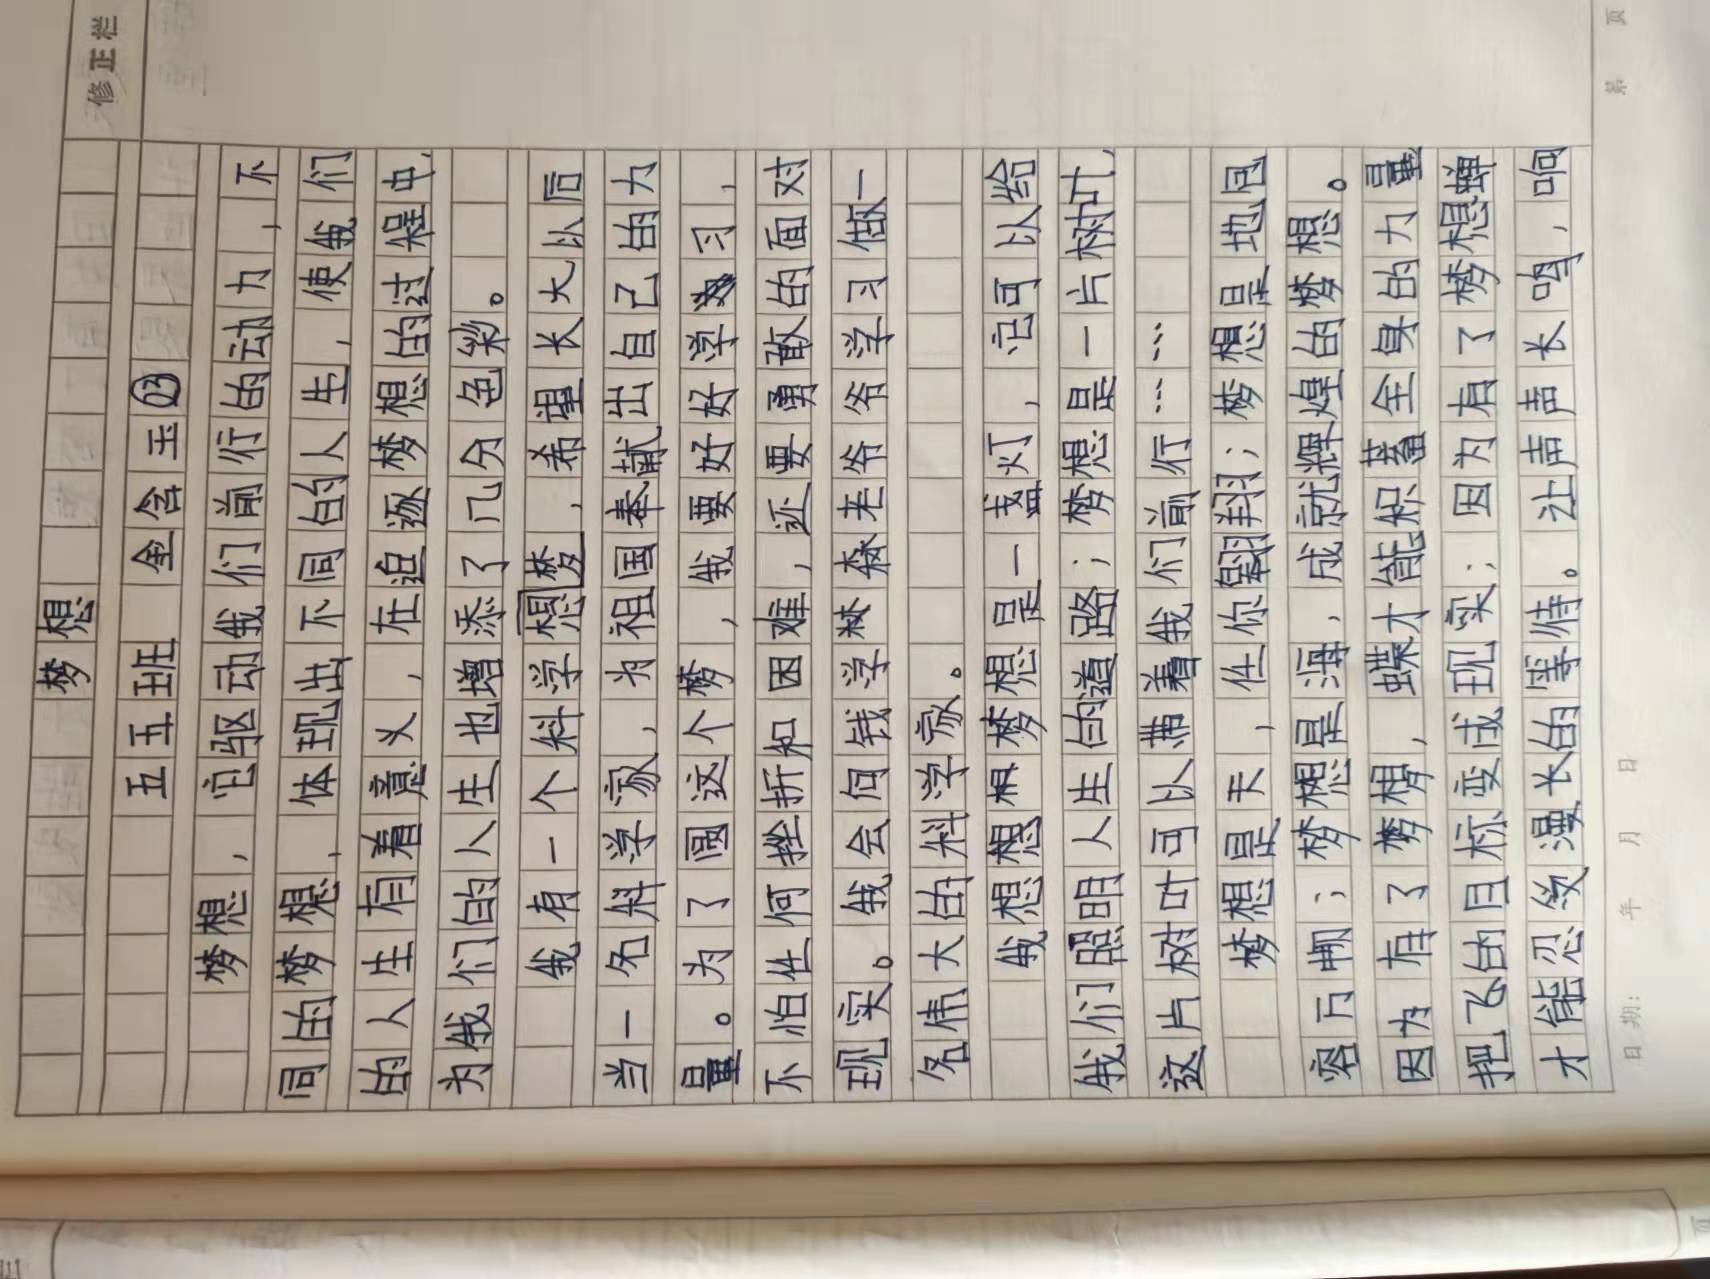 修正栏
梦想
五五班 金含玉03
梦想，它驱动我们前行的动力，不
同的梦想，体现出不同的人生，使我们
的人生有着意义，在追逐梦想的过程中，
为我们的人生也增添了几分色彩。
我有一个科学想梦，希望长大以后
当一名科学家，为祖国奉献出自己的力
量。为了圆这个梦，我要好好学习，
不怕任何挫折和困难，还要勇敢的面对
现实。我会向钱学森老爷爷学习做一
名伟大的科学家。
我想想想梦想是一盏灯，它可以给
我们照明人生的道路；梦想是一片树叶，
这片树叶可以带着我们前行……
梦想是天，任你翱翔；梦想是地包
容万物；梦想是海，成就辉煌的梦想。
因为有了梦想，蝶才能积蓄全身的力量
把飞的目标变成现实；因为有了梦想蝉
才能忍受漫长的等待。让声声长鸣，响
日期： 年 月 日
第 页